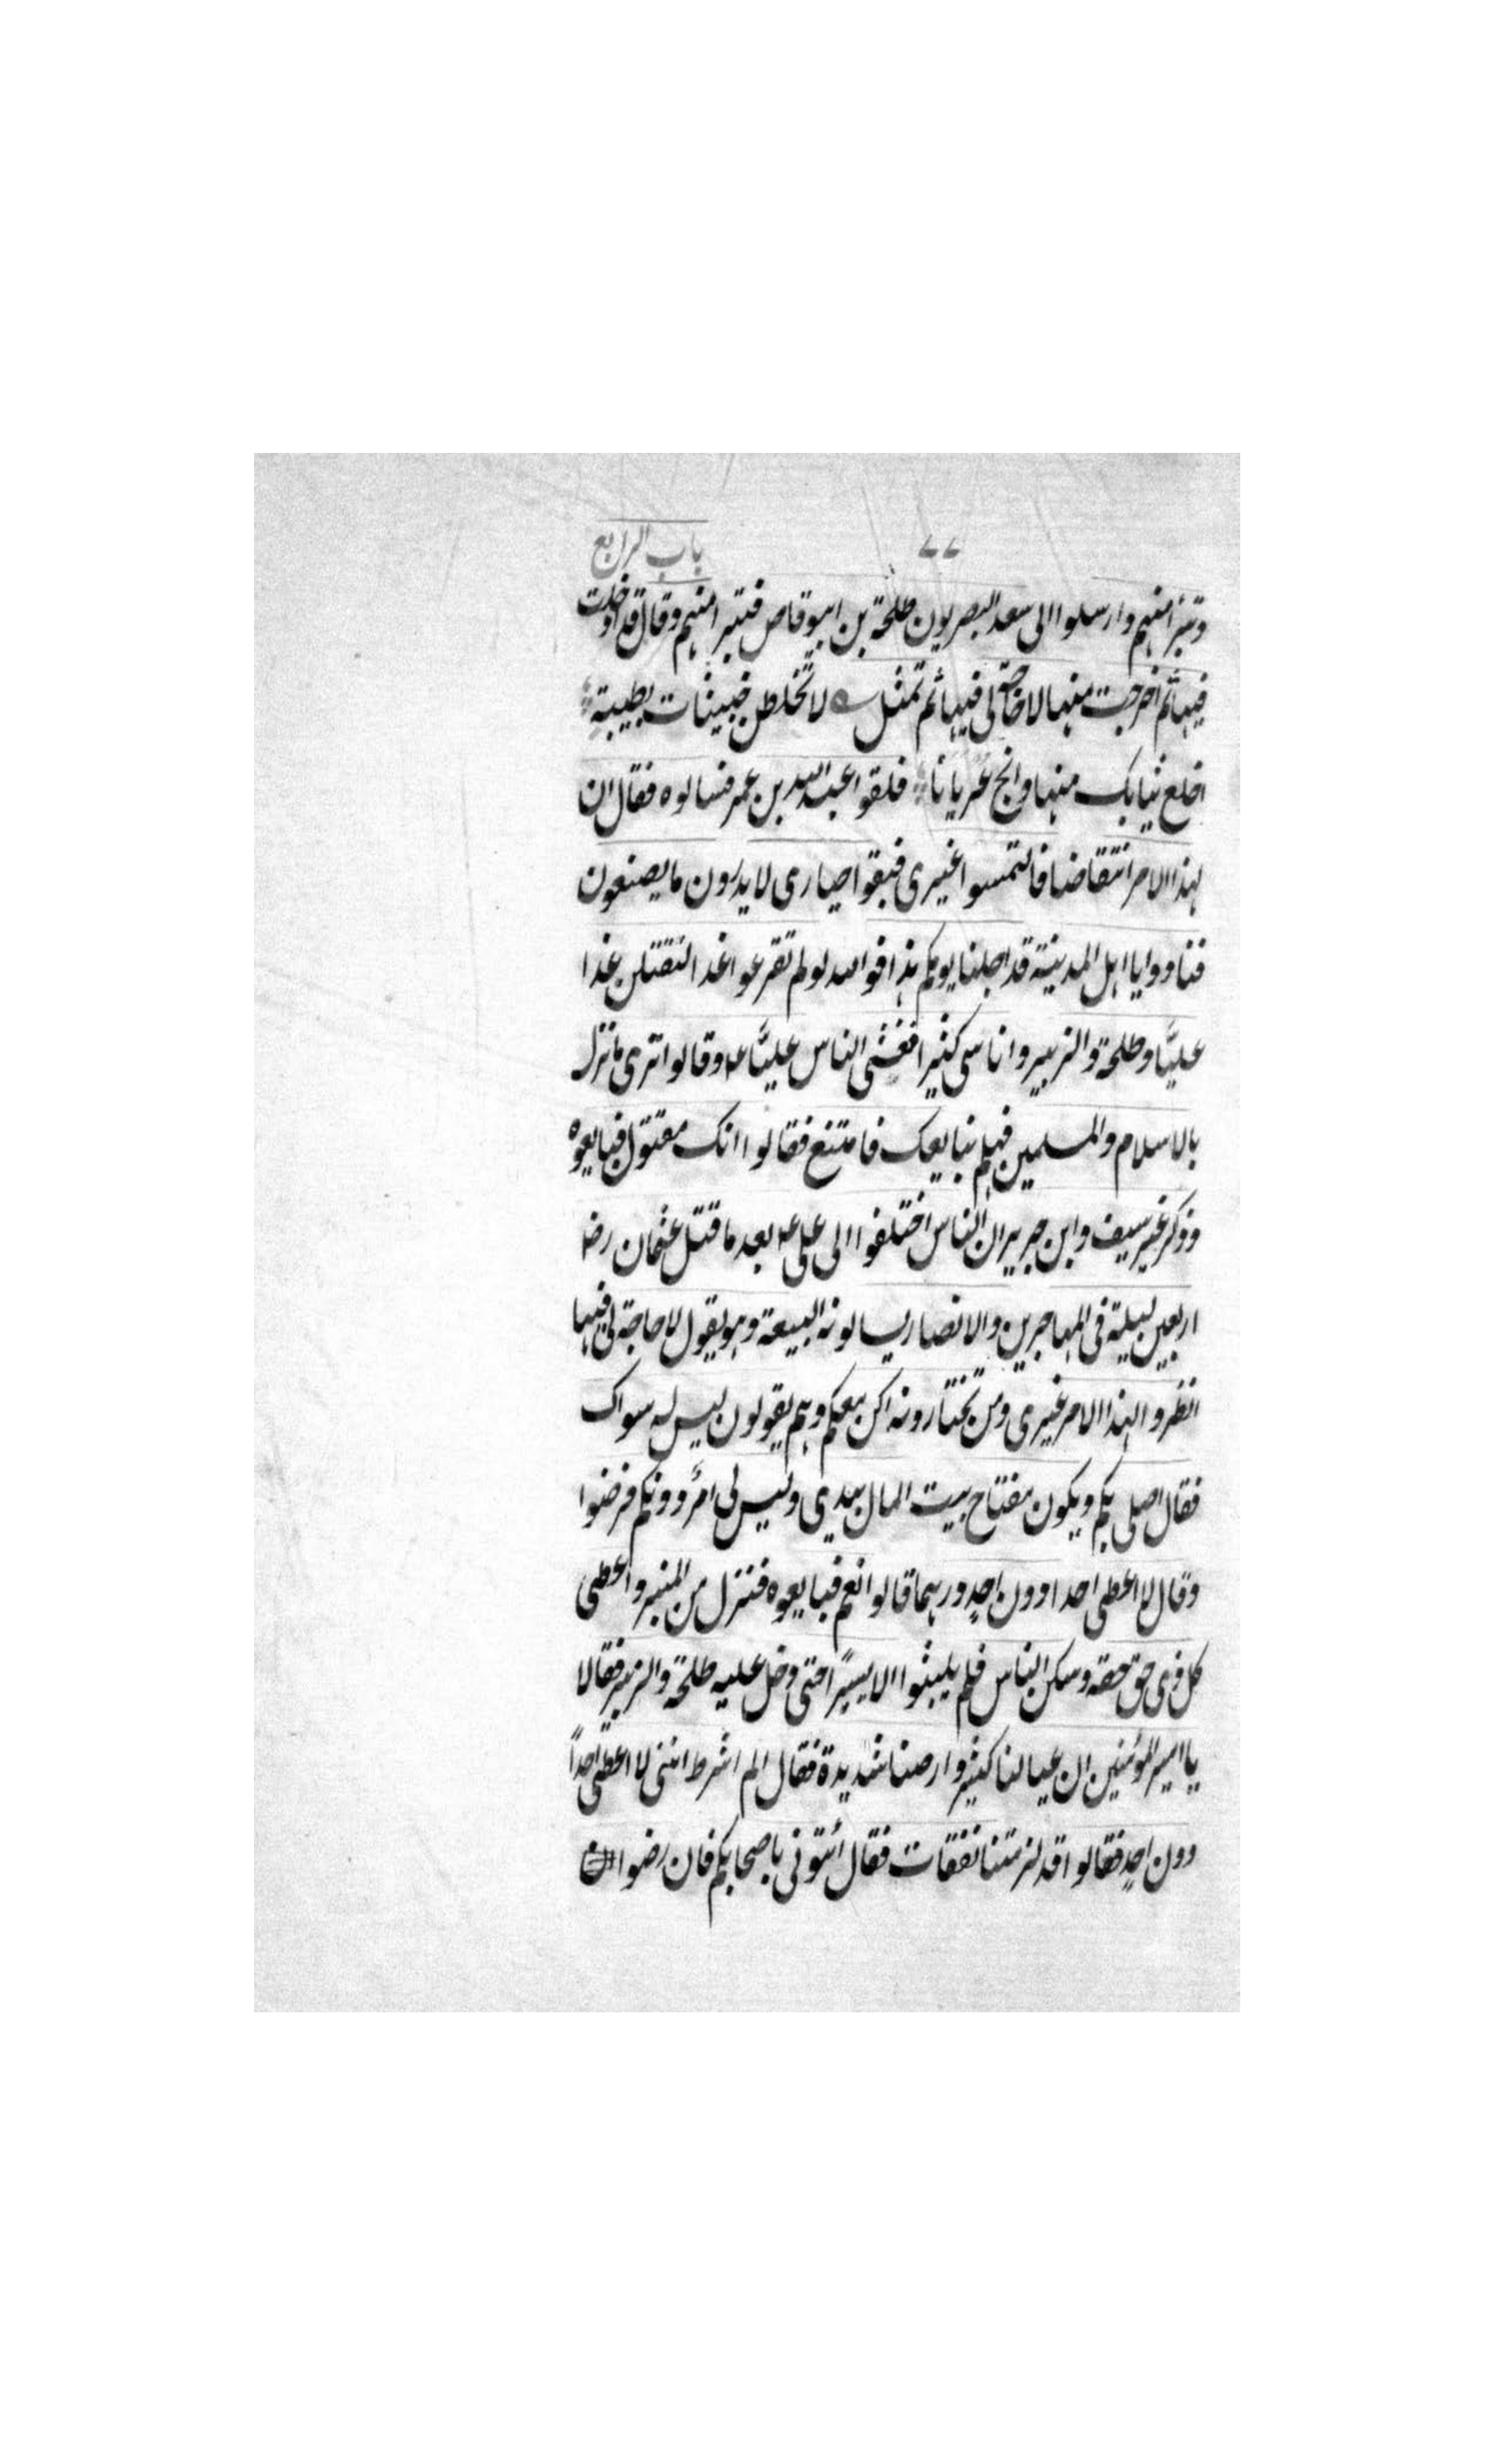 باب الرابع ٧٧
وتبرأ منهم وارسلوا الى سعد البصريون طلحة بن ابيوقاص فتبرا منهم وقال قد ادخلت
فيها ثم اخرجت منها لا حاجة لى فيها ثم تمثل لا تخلطن خبيثات بطيبة
اخلع ثيابك منها وانج عريانا فلقوا عبدالله بن عمر فسالوه فقال ان
لهذا الامر انتقاضا فالتمسوا غيرى فبقوا حيارى لا يدرون ما يصنعون
فنادوا يا اهل المدينة قد اجلنا يومكم هذا فوالله لو لم تفرغوا غدا لنقتلن غدا
عليًّا وطلحة والزبير واناسى كثيرا فغشى الناس عليًّا ع وقالوا ترى ما نزل
بالاسلام والمسلمين فهلم نبايعك فامتنع فقالوا انك مقتول فبايعوه
وذكر غير سيف وابن جرير ان الناس اختلفوا الى على ع بعد ما قتل عثمان رض
اربعين ليلة فى المهاجرين والانصار يسالونه البيعة وهو يقول لا حاجة لى فيها
انظروا لهذا الامر غيرى ومن تختارونه اكن معكم وهم يقولون ليس له سواك
فقال اصلى بكم ويكون مفتاح بيت المال بيدى وليس لى امرٌ دونكم فرضوا
وقال لا اعطى احدا دون احدٍ درهما قالوا نعم فبايعوه فنزل من المنبر واعطى
كل ذى حق حقه وسكن الناس فلم يلبثوا الا يسيرًا حتى دخل عليه طلحة والزبير فقالا
يا امير المؤمنين ان عيالنا كثير وارضنا شديدة فقال الم اشرط اننى لا اعطى احداً
دون احدٍ فقالوا قد لزمتنا نفقات فقال ائتونى باصحابكم فان رضوا